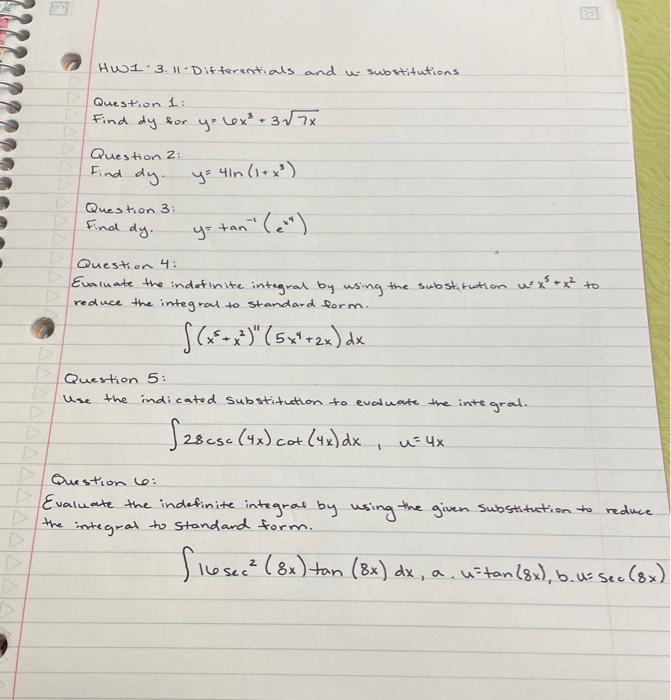 HW1-3.11-Differentials and u-substitutions
Question 1:
Find dy for y= 6x³ + 3√7x
Question 2:
Find dy. y= 4ln(1+x³)
Question 3:
Find dy. y= tan⁻¹(e^x⁴)
Question 4:
Evaluate the indefinite integral by using the substitution u=x⁵+x² to
reduce the integral to standard form.
∫(x⁵+x²)¹¹(5x⁴+2x)dx
Question 5:
Use the indicated substitution to evaluate the integral.
∫28csc(4x)cot(4x)dx, u=4x
Question 6:
Evaluate the indefinite integral by using the given substitution to reduce
the integral to standard form.
∫16sec²(8x)tan(8x)dx, a. u=tan(8x), b. u=sec(8x)